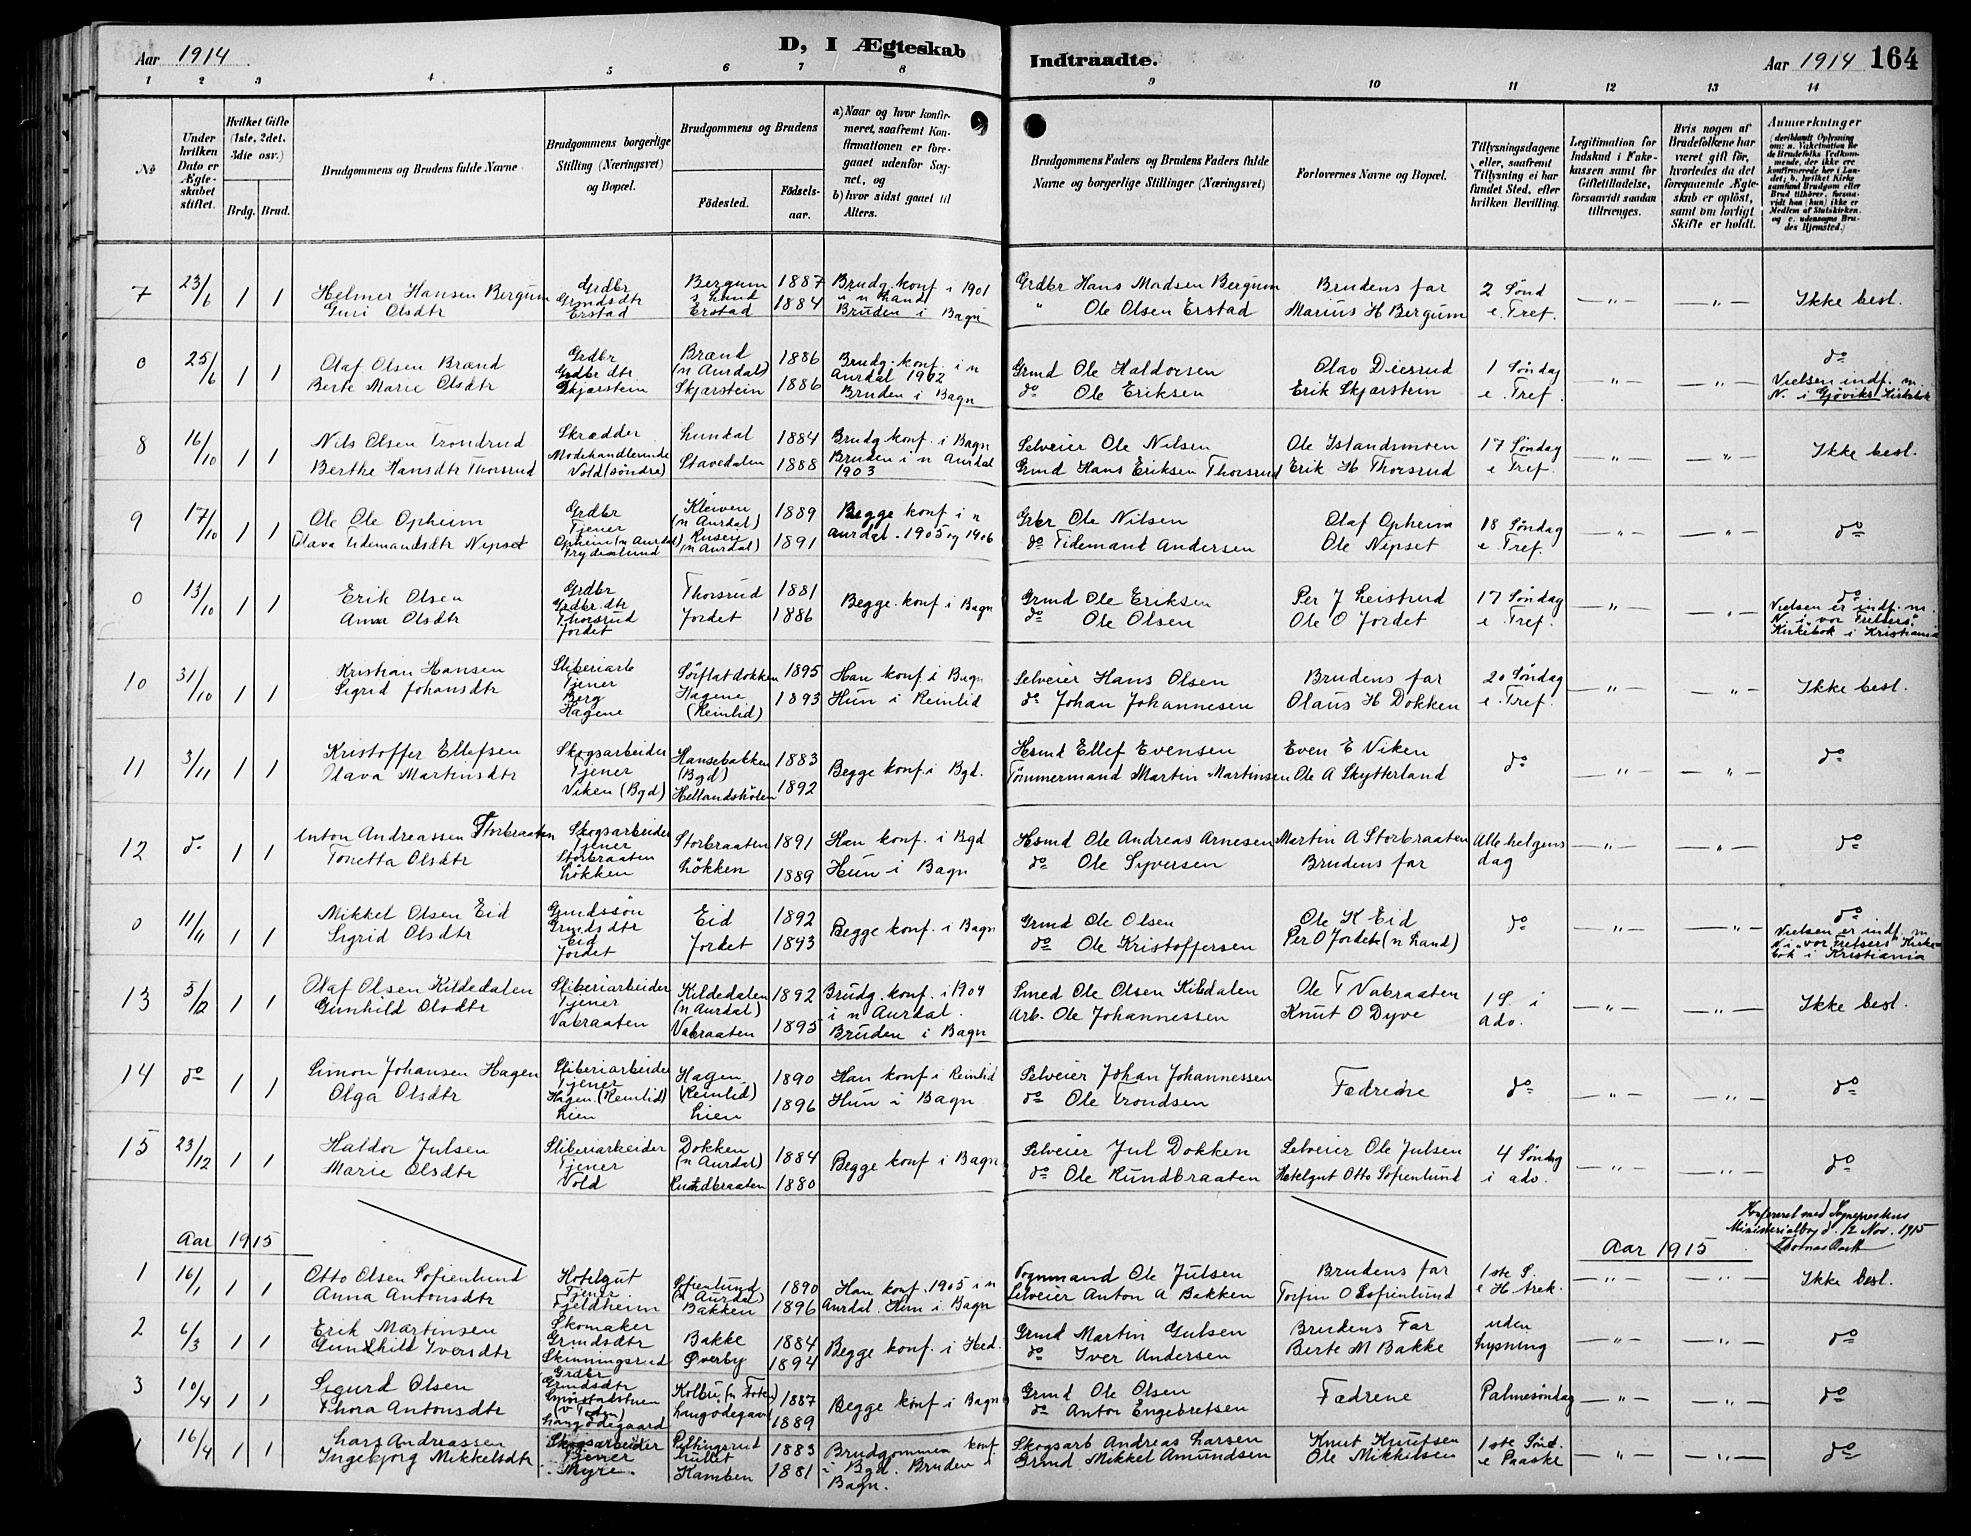 Aar 1914
D, I Ægteskab
Indtraadte.
Aar 1914 164
1 2 3 4 5 6 7 8 9 10 11 12 13 14
No
Under hvilken Dato er Ægteskabet stiftet.
Hvilket Gifte (1ste, 2det, 3die osv.)
Brdg. Brud.
Brudgommens og Brudens fulde Navne
Brudgommens borgerlige Stilling (Næringsvei) og Bopæl.
Brudgommens og Brudens
Fødested.
Fødsels-aar.
a) Naar og hvor konfirmeret, saafremt Konfirmationen er foregaaet udenfor Sognet, og
b) hvor sidst gaaet til Alters.
Brudgommens Faders og Brudens Faders fulde Navne og borgerlige Stillinger (Næringsvei)
Forlovernes Navne og Bopæl.
Tillysningsdagene eller, saafremt Tillysning ei har fundet Sted, efter hvilken Bevilling.
Legitimation for Indskud i Enkekassen samt for Giftetilladelse, forsaavidt saadan tiltrænges.
Hvis nogen af Brudefolkene har været gift før, hvorledes da det foregaaende Ægteskab er opløst, samt om lovligt Skifte er holdt.
Anmærkninger
(deriblandt Oplysning om: a. Vakcination for de Brudefolks Vedkommende, der ikke ere konfirmerede her i Landet; b. hvilket Kirkesamfund Brudgom eller Brud tilhører, forsaavidt han (hun) ikke er Medlem af Statskirken, og c. udensogns Brudes Hjemsted.)
7 23/6 1 1 Helmer Hansen Bergum Grdbr Bergum 1887 Brudg. konf. i 1901 Grdbr Hans Madsen Bergum Brudens far 2 Sønd —„— —„— Ikke besl.
Guri Olsdtr Grmdsdtr s Land 1884 i n Land „ Ole Olsen Erstad Marius H Bergum e. Tref.
Erstad Erstad Bruden i Bagn
0 25/6 1 1 Olaf Olsen Brænd Grdbr Brænd 1886 Brudg. konf. i n Grmd Ole Haldorsen Olav Diesrud 1 Søndag —„— —„— do
Berte Marie Olsdtr Grdbr dtr (n Aurdal) 1886 Aurdal 1902 do Ole Eriksen Erik Skjærstein e. Tref. Vielsen indf. m.
Skjærstein Skjærstein Bruden i Bagn N. i Gjøviks Kirkebok
8 16/10 1 1 Nils Olsen Trondrud Skrædder Lundal 1884 Brudg konf. i Bagn Selveier Ole Nilsen Ole Islandsmoen 17 Søndag —„— —„— Ikke besl.
Berthe Hansdtr Thorsrud Modehandlerinde Stavedalen 1888 Bruden i n Aurdal Grmd Hans Eriksen Thorsrud Erik H Thorsrud e Tref.
Vold (søndre) 1903
9 17/10 1 1 Ole Ole Opheim Grdbr Kleiven 1889 Begge konf i n Grbr Ole Nilsen Olaf Opheim 18 Søndag —„— —„— do
Olava Tidemandsdtr Nipset Tjener (n Aurdal) 1891 Aurdal. 1905 og 1906 do Tidemand Andersen Ole Nipset e Tref.
Opheim (n Aurdal) (n Aurdal)
Frydenlund
0 13/10 1 1 Erik Olsen Grdbr Thorsrud 1881 Begge konf i Bagn Grmd Ole Eriksen Per J Leistrud 17 Søndag —„— —„— do
Anna Olsdtr Grdbr dtr Jordet 1886 do Ole Olsen Ole O Jordet e Tref. Vielsen er indf. m.
Thorsrud N. i „vor Frelsers"
Jordet Kirkebok i Kristiania
10 31/10 1 1 Kristian Hansen Sliberiarb Sørflatdokken 1895 Han konf i Bagn Selveier Hans Olsen Brudens far 20 Søndag —„— —„— Ikke besl.
Sigrid Johansdtr Tjener Hagene 1893 Hun i Reinlid do Johan Johannesen Olaus H Dokken e. Tref.
Berg (Reinlid)
Hagene
11 3/11 1 1 Kristoffer Ellefsen Skogsarbeider Hansebakken 1883 Begge konf. i Bgd. Hsmd Ellef Evensen Even E Viken do —„— —„— do
Olava Martinsdtr Tjener (Bgd) 1892 Tømmermand Martin Martinsen Ole A Skytterland
Viken (Bgd) Hellandshølen
12 do 1 1 Anton Andreassen Storbraaten Skogsarbeider Storbraaten 1891 Han konf. i Bgd Hsmd Ole Andreas Arnesen Martin A Storbraaten Alle helgens —„— —„— do
Tonetta Olsdtr Tjener Løkken 1889 Hun i Bagn do Ole Syversen Brudens far dag
Storbraaten
Løkken
0 11/11 1 1 Mikkel Olsen Eid Grmdssøn Eid 1892 Begge konf. i Bagn Grmd Ole Olsen Ole K Eid do —„— —„— do
Sigrid Olsdtr Grmdsdtr Jordet 1893 do Ole Kristoffersen Per O Jordet (n Land) Vielsen er indf. m
Eid N. i „vor Frelsers" Kirke-
Jordet bok i Kristiania
13 5/12 1 1 Olaf Olsen Kildedalen Sliberiarbeider Kildedalen 1892 Brudg. konf. i 1907 Smed Ole Olsen Kildalen Ole T Vabraaten 1 S. i —„— —„— Ikke besl.
Gunhild Olsdtr Tjener (n Aurdal) 1895 i n Aurdal. Arb. Ole Johannessen Knut O Dyve adv.
Vabraaten Vabraaten Bruden i Bagn
14 do 1 1 Simon Johansen Hagen Sliberiarbeider Hagen 1890 Han konf i Reinlid Selveier Johan Johannessen Fædrene do —„— —„— do
Olga Olsdtr Tjener (Reinlid) 1896 Hun i Bagn do Ole Trondsen
Hagen (Reinlid) Lien
Lien
15 23/12 1 1 Haldor Julsen Sliberiarbeider Dokken 1884 Begge konf i Bagn Selveier Jul Dokken Selveier Ole Julsen 4 Søndag —„— —„— do
Marie Olsdtr Tjener (n Aurdal) 1880 do Ole Rundbraaten Hotelgut Otto Sofienlund i adv.
Vold Rundbraaten
Konfereret med Sogneprestens
Ministerialbog d. 12 Nov. 1915
Aar 1915 Aar 1915
1 16/1 1 1 Otto Olsen Sofienlund Hotelgut Sofienlund 1890 Han konf. 1905 i n Vognmand Ole Julsen Brudens far 1ste S. —„— —„— Ikke besl.
Anna Antonsdtr Tjener (n Aurdal) 1896 Aurdal. Hun i Bagn Selveier Anton A Bakken Torfin O Sofienlund e H. trek.
Fjeldheim Bakken
2 6/3 1 1 Erik Martinsen Skomaker Bakke 1884 Begge konf. i Hed. Grmd Martin Gulsen Brudens Far uden —„— —„— do
Gunhild Iversdtr Grmdsdtr Øverby 1894 do Iver Andersen Berte M Bakke Lysning
Skinningsrud
3 10/4 1 1 Sigurd Olsen Grdbr Kolbu (n Toten) 1887 Begge konf i Bagn Grmd Ole Olsen Fædrene Palmesøndag —„— —„— do
Thora Antonsdtr Grmdsdtr Langødegaard 1889 do Anton Engebretsen
(v Toten)
Langødegaard
16/4 1 1 Lars Andreassen Skogsarbeider 1883 Brudgommen konf. Skogsarb Andreas Larsen Knut Knutsen 1ste Sønd. —„— —„— do
Ingebjørg Mikkelsdtr Tjener 1881 i Bgd. Bruden i Grmd Mikkel Amundsen Ole Mikkelsen e Paaske
Myre. Kamben Bagn.